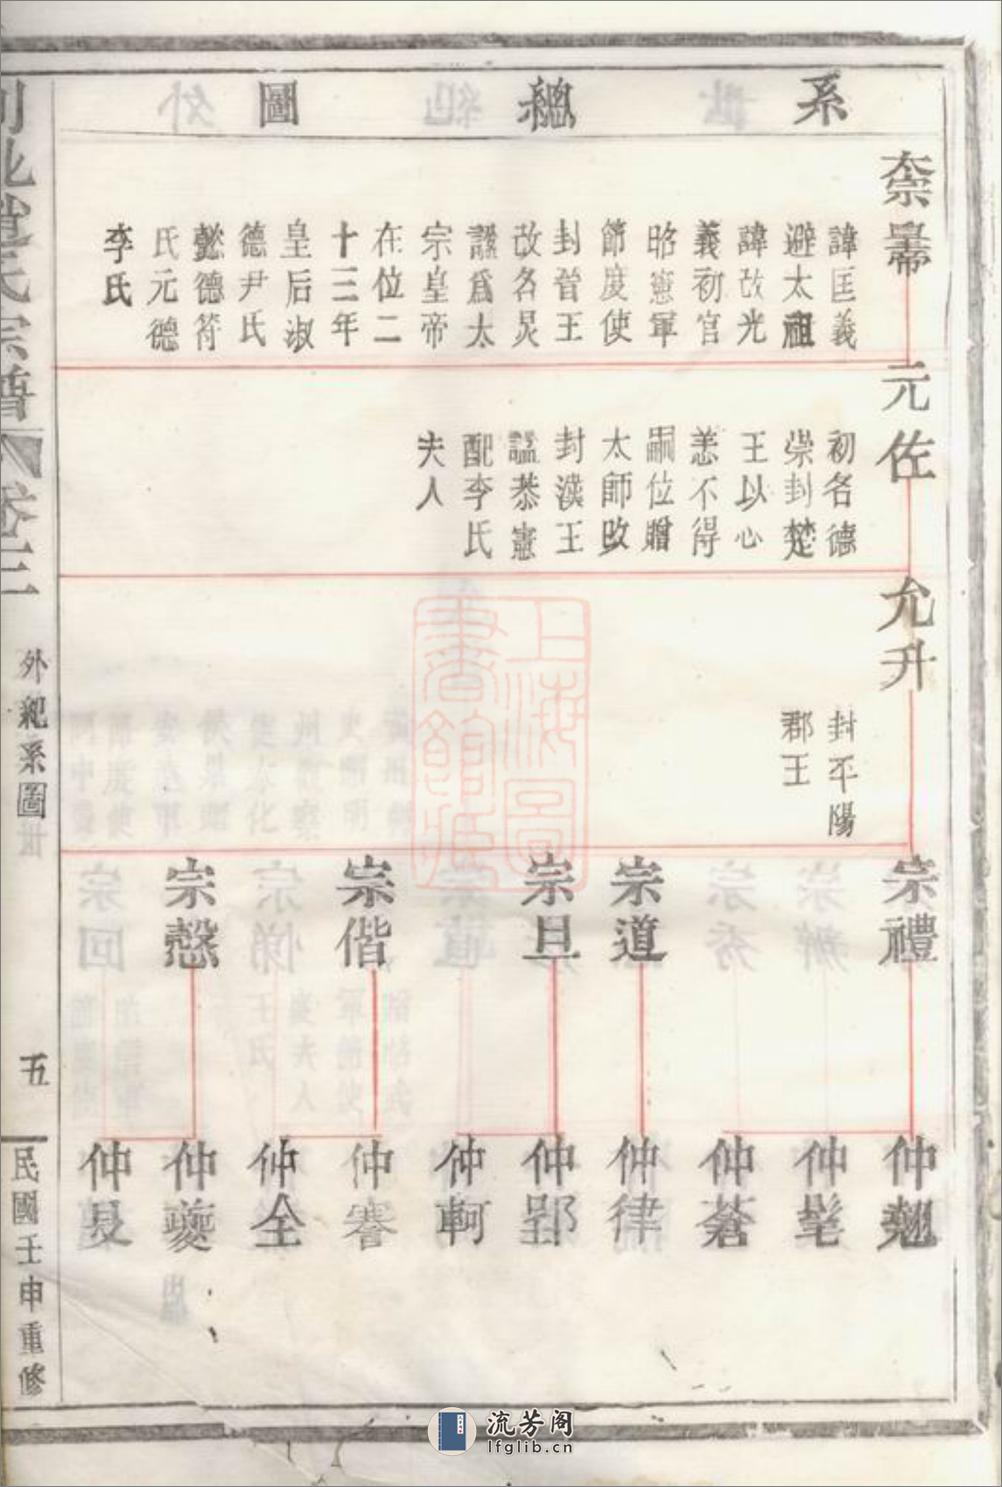 系總圖
太宗皇帝
諱匡義
避太祖
諱改光
義初官
昭憲軍
節度使
封晉王
改名炅
諡爲太
宗皇帝
在位二
十三年
皇后淑
德尹氏
懿德符
氏元德
李氏
元佐
初名德
崇封楚
王以心
恙不得
嗣位贈
太師改
封漢王
諡恭憲
配李氏
夫人
允升
封平陽
郡王
宗禮
宗道
宗旦
宗偕
宗慤
仲翹
仲髦
仲蒼
仲律
仲郢
仲軻
仲謇
仲全
仲夔
仲旻
趙氏宗譜
卷三
外紀系圖
五
民國壬申重修
上海圖書館藏
流芳阁
lfglib.cn